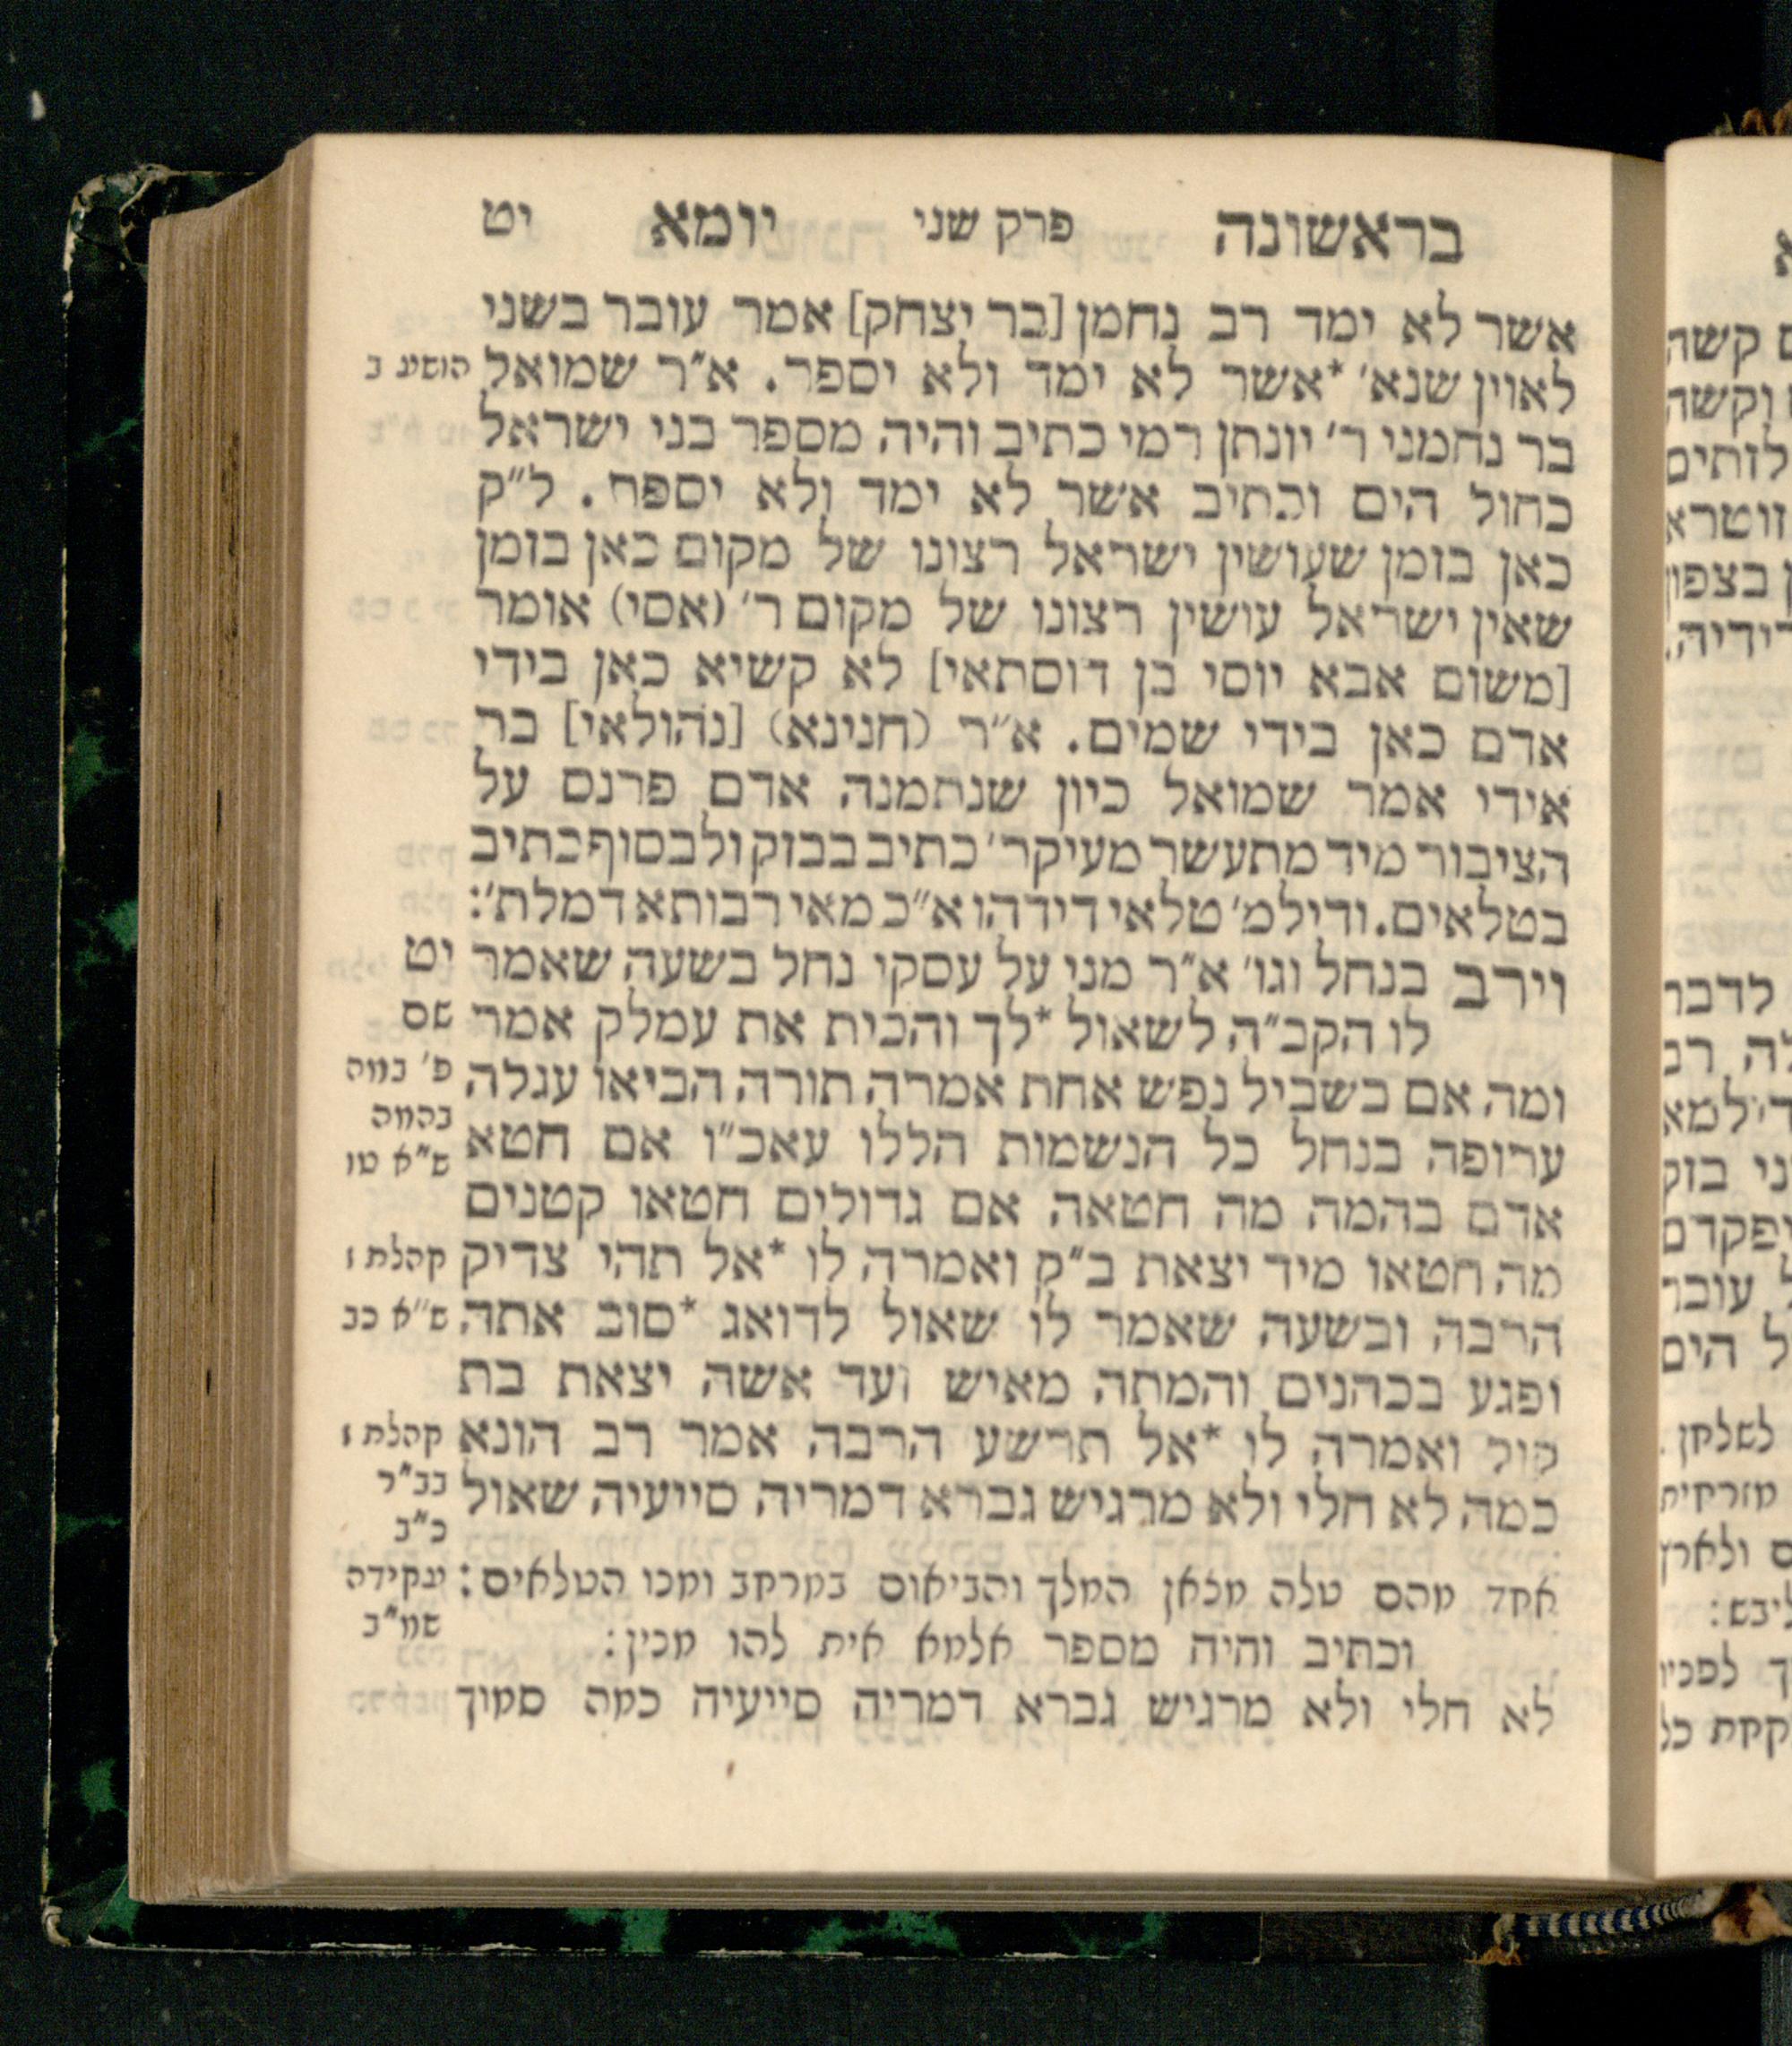 בראשונה פרק שני יומא יט
אשר לא ימד רב נחמן [בר יצחק] אמר עובר בשני
לאוין שנא׳ *אשר לא ימד ולא יספר. א״ר שמואל
הושע ב
בר נחמני ר׳ יונתן רמי כתיב והיה מספר בני ישראל
כחול הים וכתיב אשר לא ימד ולא יספר. ל״ק
כאן בזמן שעושין ישראל רצונו של מקום כאן בזמן
שאין ישראל עושין רצונו של מקום ר׳ (אסי) אומר
[משום אבא יוסי בן דוסתאי] לא קשיא כאן בידי
אדם כאן בידי שמים. א״ר (חנינא) [נהולאי] בר
אידי אמר שמואל כיון שנתמנה אדם פרנס על
הציבור מיד מתעשר מעיקר׳ כתיב בבזק ולבסוף כתיב
בטלאים. ודילמ׳ טלאי דידהו א״כ מאי רבותא דמלת׳:
וירב בנחל וגו׳ א״ר מני על עסקי נחל בשעה שאמר
יט
לו הקב״ה לשאול *לך והכית את עמלק אמר
שם
ומה אם בשביל נפש אחת אמרה תורה הביאו עגלה
פ׳ במה
בהמה
ערופה בנחל כל הנשמות הללו עאכ״ו אם חטא
ש״א טו
אדם בהמה מה חטאה אם גדולים חטאו קטנים
מה חטאו מיד יצאת ב״ק ואמרה לו *אל תהי צדיק
קהלת ז
הרבה ובשעה שאמר לו שאול לדואג *סוב אתה
ש״א כב
ופגע בכהנים והמתה מאיש ועד אשה יצאת בת
קול ואמרה לו *אל תרשע הרבה אמר רב הונא
קהלת ז
כמה לא חלי ולא מרגיש גברא דמריה סייעיה שאול
בב״ר
כ״ב
אחד מהם טלה מצאן המלך והביאום במרחב ומנו הטלאים:
עקידה
שמ״ב
וכתיב והיה מספר אלמא אית להו מנין:
לא חלי ולא מרגיש גברא דמריה סייעיה כמה סמוך
קשה
וקשה
לזתים
זוטרא
בצפון
לדבר
בזק
יפקדם
עובר
הים
לשלחן
ולארץ
ליבש: